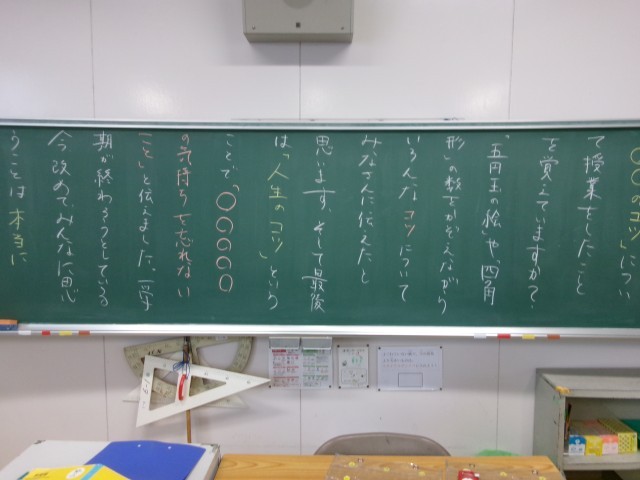 〇〇のコツ」につい
て授業をしたこと
を覚えていますか？
「五円玉の絵」や、「四角
形」の数をかぞえながら
いろんなコツについて
みなさんに伝えたと
思います。そして最後
は「人生のコツ」という
ことで、「〇〇〇〇〇
の気持ちを忘れない
こと」と伝えました。一学
期が終わろうとしている
今改めて、みんなに思
うことは本当に